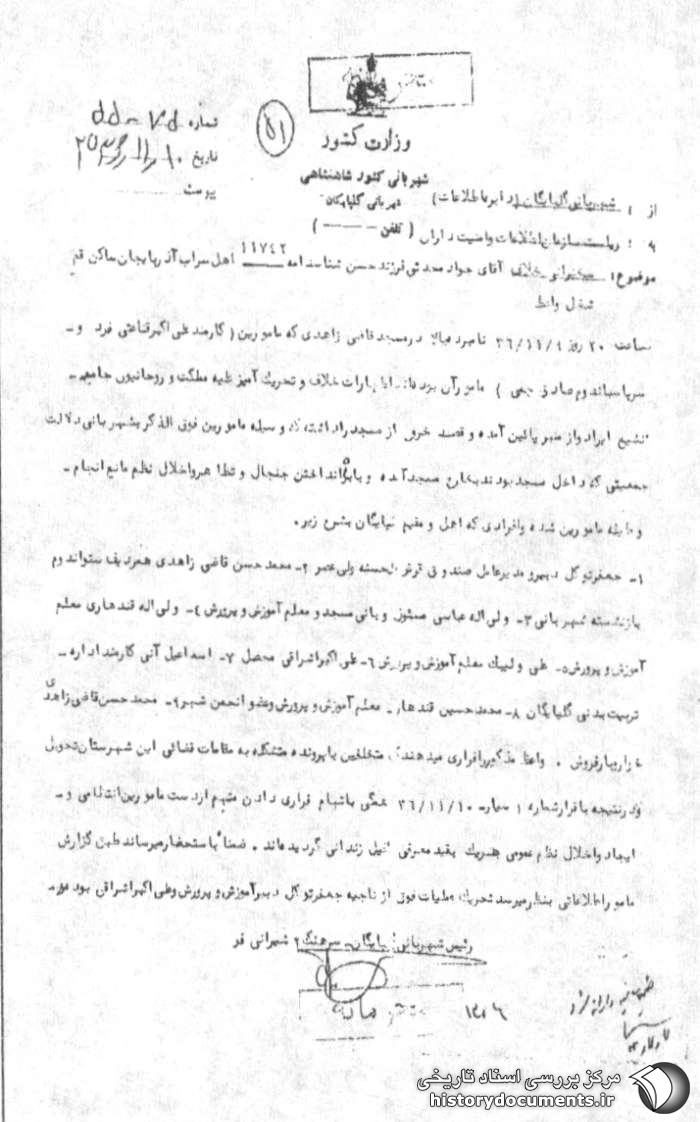 شماره ۷۵-۵۵
تاریخ
پیوست
۵۱
وزارت کشور
شهربانی کشور شاهنشاهی
شهربانی گلپایگان
از : شهربانی گلپایگان (دایره اطلاعات)
به : ریاست سازمان اطلاعات وامنیت داران ( تلفن - )
موضوع: آقای جواد محدثی فرزند حسن شناسنامه ۱۱۷۴۲ اهل سراب آذربایجان ساکن قم
شغل واعظ
ساعت ۲۰ روز ۳۶/۱۱/۹ نامبرده بالا در مسجد قاضی زاهدی که مامورین ( کارمند علی اکبر قناعتی فرد و -
مامور آن بوده اند اظهارات خلاف و تحریک آمیز علیه مملکت و روحانیون جامعه -
تشیع ایراد و از منبر پائین آمده و قصد خروج از مسجد را داشته که وسیله مامورین فوق الذکر بشهربانی دلالت
جمعیتی که داخل مسجد بودند بخارج مسجد آمده و با براه انداختن جنجال و تظاهر و اخلال نظم مانع انجام -
وظیفه مامورین شده و افرادی که اهل و مقیم گلپایگان بشرح زیر .
۱- جعفر توکل دبیر و مدیر عامل صندوق قرض الحسنه ولی عصر ۲- محمد حسن قاضی زاهدی همردیف ستواندوم
بازنشسته شهربانی ۳- ولی اله عباسی مسئول و بانی مسجد و معلم آموزش و پرورش ۴- ولی اله قندهاری معلم
آموزش و پرورش ۵- علی معلم آموزش و پرورش ۶- علی اکبر اشراقی محصل ۷- اسماعیل آنی کارمند اداره -
تربیت بدنی گلپایگان ۸- محمد حسین قندهاری معلم آموزش و پرورش و عضو انجمن شهر ۹- محمد حسن قاضی زاهدی
خواربار فروش . واعظ مذکور را فراری میدهند که متخلفین با پرونده متشکله به مقامات قضائی این شهرستان تحویل
و در نتیجه با قرار شماره ۱ ۳۶/۱۱/۱۰ همگی باتهام فراری دادن متهم از دست مامورین انتظامی و -
ایجاد و اخلال نظم عمومی هریک بقید معرفی کفیل زندانی گردیده اند . ضمناً باستحضار میرساند طبق گزارش
مامور اطلاعاتی بنظر میرسد تحریک عملیات فوق از ناحیه جعفر توکل دبیر آموزش و پرورش و علی اکبر اشراقی بوده
رئیس شهربانی گلپایگان - سرهنگ ۲ شهرانی فر
مرکز بررسی اسناد تاریخی
historydocuments.ir